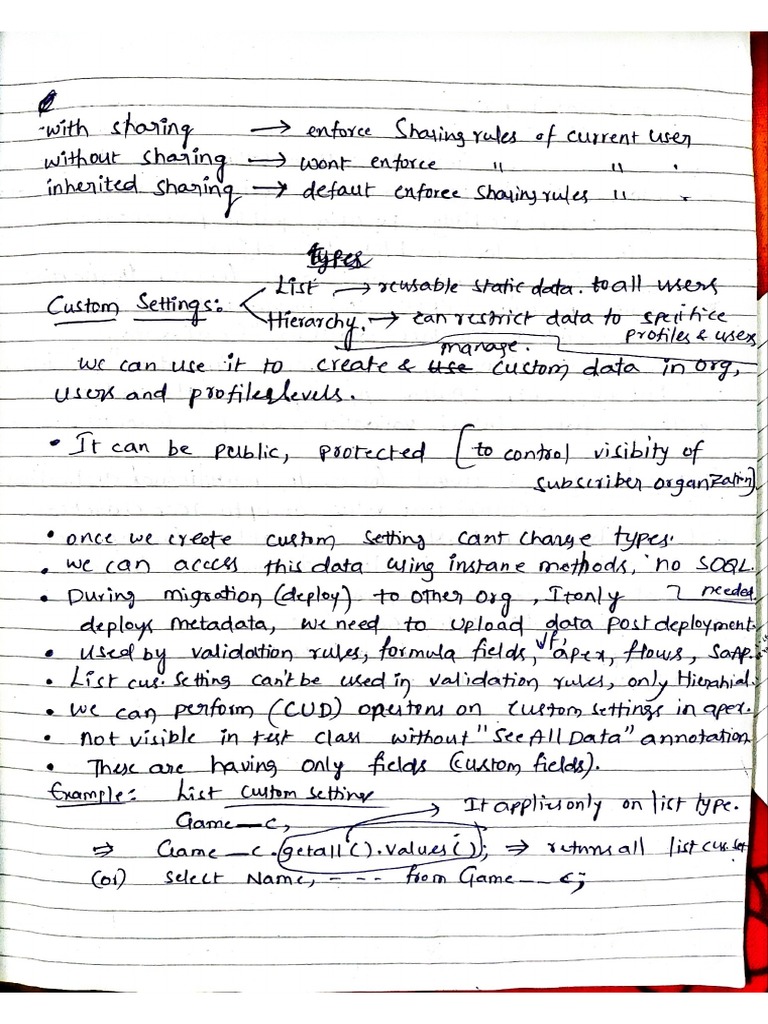 with sharing → enforce Sharing rules of current user
without sharing → wont enforce " " .
inherited sharing → defaut enforce sharing rules " .
types
Custom Settings: List → reusable static data. to all users
Hierarchy. → can restrict data to specifice
profiles & users
manage.
we can use it to create & use custom data in org,
users and profiles levels.
• It can be public, protected [to control visibity of
subscriber organization]
• once we create custom setting cant change types.
• we can access this data using instane methods, no SOQL
needed
• During migration (deploy) to other org, It only
deploys metadata, we need to upload data post deployment.
• used by validation rules, formula fields, vf, apex, flows, SOAP.
• List cus. setting can't be used in validation rules, only Hierahial.
• we can perform (CUD) opertons on custom settings in apex.
• not visible in test class without "See All Data" annotation
• These are having only fields (custom fields).
Example: List custom setting
It applies only on list type.
Game__c,
⇒ Game__c.getall().values(); ⇒ returns all list cus. set
(or) select Name, - - - from Game__c;